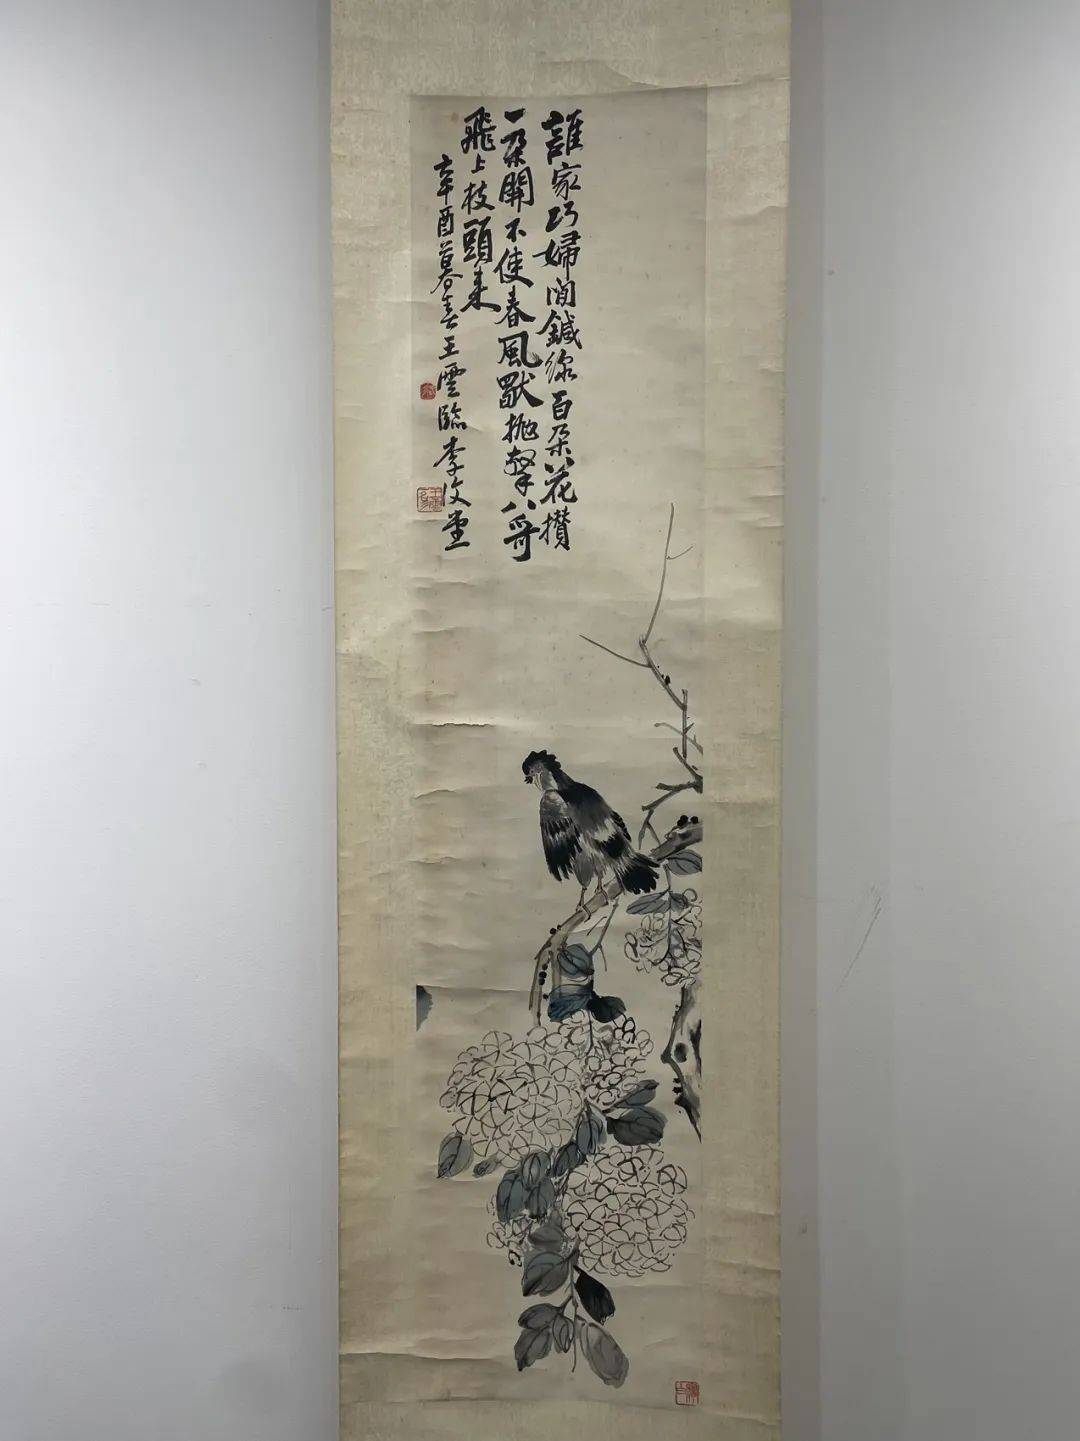 誰家巧婦閒鍼線百朵花攢
一朵開不使春風歇拋擊八哥
飛上枝頭來
辛酉暮春王雲臨李復堂